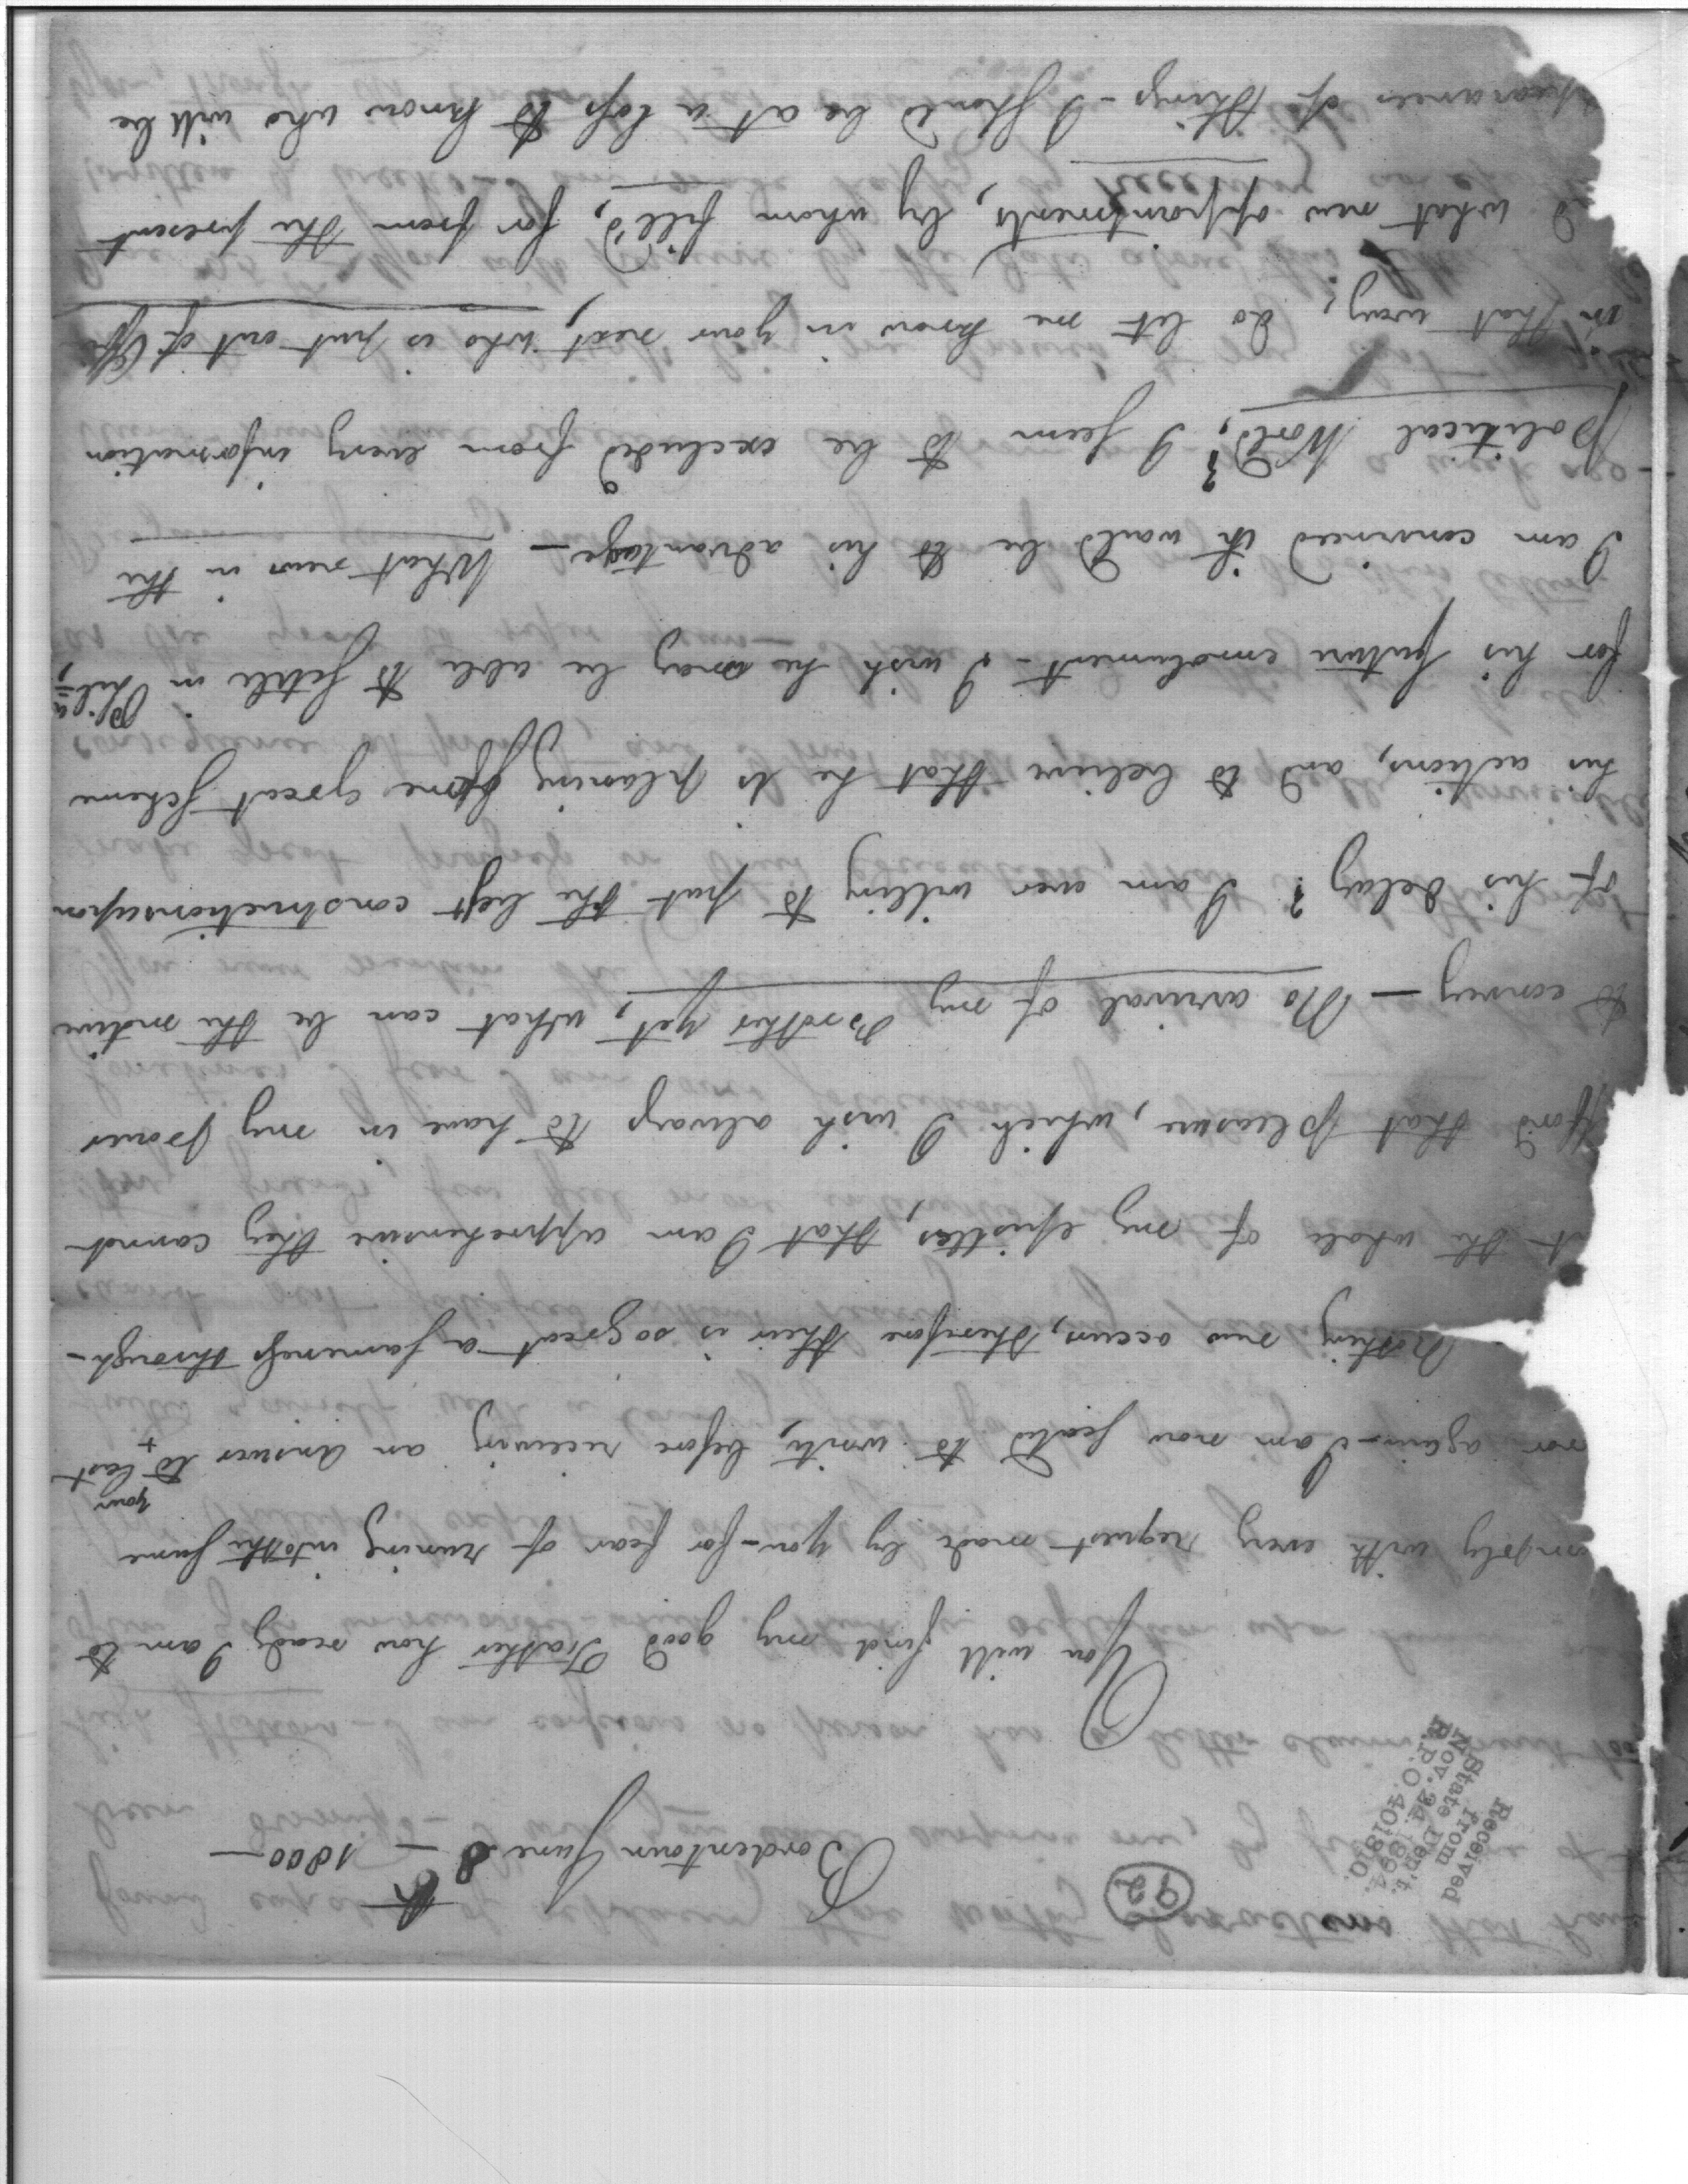 Received
from
State Dep't.
Nov. 24. 1894.
R.P.O. 401810.
92
Bordentown June 8th — 1800 —
You will find my good Father how ready I am to
comply with every request made by you - for fear of runing into the same
your
error again - I am now seated to write, before receiving an answer to + last
Nothing new occurs, therefore their is so great a sameness through-
out the whole of my Epistles, that I am apprehensive they cannot
afford that pleasure, which I wish always to have in my power
to convey — No arrival of my Brother yet, what can be the motive
of his delay? I am ever willing to put the best constructions upon
his actions, and to believe that he is planing some great scheme
for his future emolument - I wish he may be able to settle in Phila,
I am convinced it would be to his advantage — What news in the
Political World,? I seem to be excluded from every information
in that way, do let me know in your next, who is put out of
what new appointments, by whom fill'd, for from the present
appearances of things - I should be at a loss to know who will be